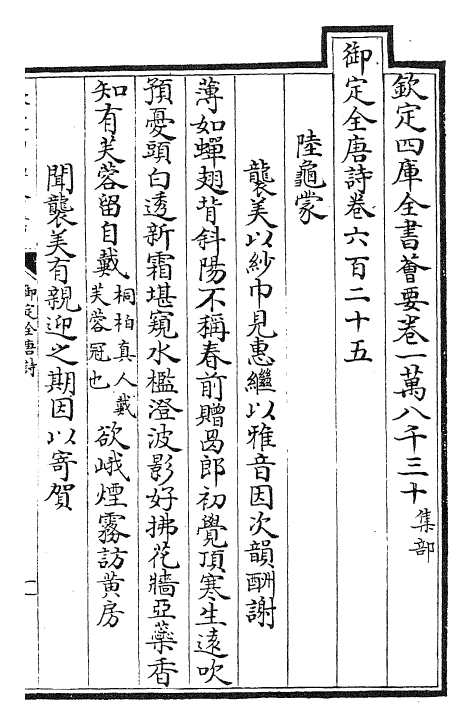 欽定四庫全書薈要卷一萬八千三十集部
御定全唐詩卷六百二十五
陸龜蒙
襲美以紗巾見惠繼以雅音因次韻酬謝
薄如蟬翅背斜陽不稱春前贈曷郎初覺頂寒生逺吹
預憂頭白透新霜堪窺水檻澄波影好拂花牆亞蘂香
知有芙蓉留自戴桐柏真人戴芙蓉冠也欲峨煙霧訪黃房
聞襲美有親迎之期因以寄賀
御定全唐詩
一